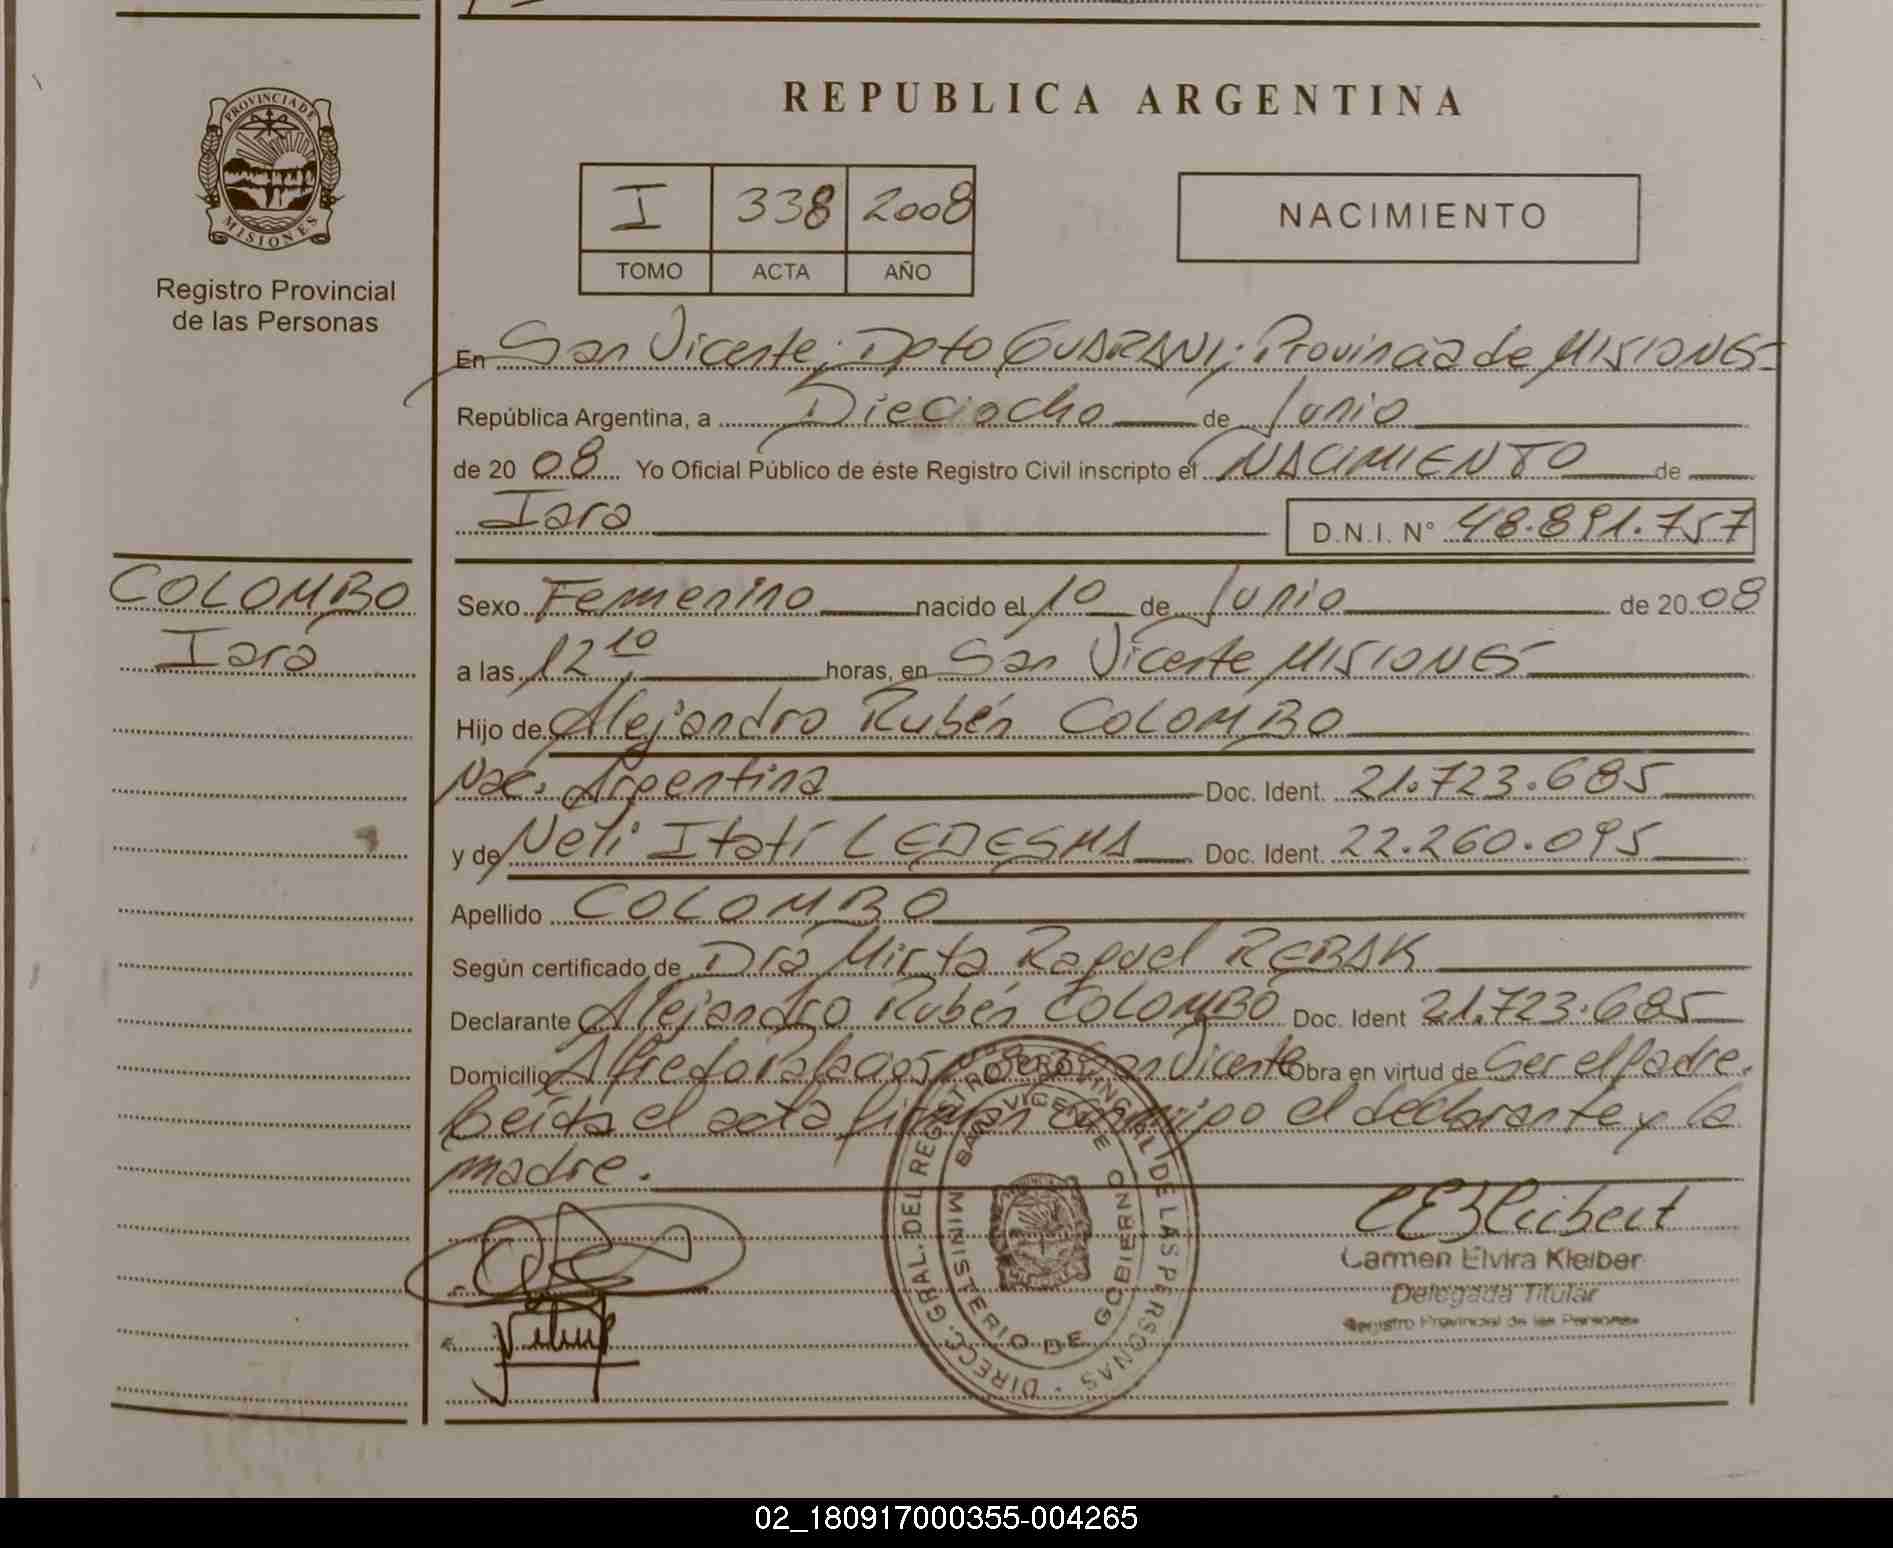 REPUBLICA ARGENTINA
PROVINCIA DE
MISIONES
Registro Provincial
de las Personas
I 338 2008
TOMO ACTA AÑO
NACIMIENTO
En San Vicente; Dpto GUARANI; Provincia de MISIONES
República Argentina, a Dieciocho de Junio
de 20 08 Yo Oficial Público de éste Registro Civil inscripto el NACIMIENTO de
Iara D.N.I. N° 48.891.757
COLOMBO
Iara
Sexo Femenino nacido el 10 de Junio de 20 08
a las 12 10 horas, en San Vicente MISIONES
Hijo de Alejandro Rubén COLOMBO
Nac. Argentina Doc. Ident. 21.723.685
y de Neli Itatí LEDESMA Doc. Ident. 22.260.095
Apellido COLOMBO
Según certificado de Dra Mirta Raquel REBAK
Declarante Alejandro Rubén COLOMBO Doc. Ident 21.723.685
Domicilio Alfredo Palacios San Vicente Obra en virtud de Ser el padre.
Leída el acta firman conmigo el declarante y la
madre.
DIRECC. GRAL. DEL REGISTRO PROVINCIAL DE LAS PERSONAS
SAN VICENTE
MINISTERIO DE GOBIERNO
Carmen Elvira Kleiber
Delegada Titular
Registro Provincial de las Personas
02_180917000355-004265